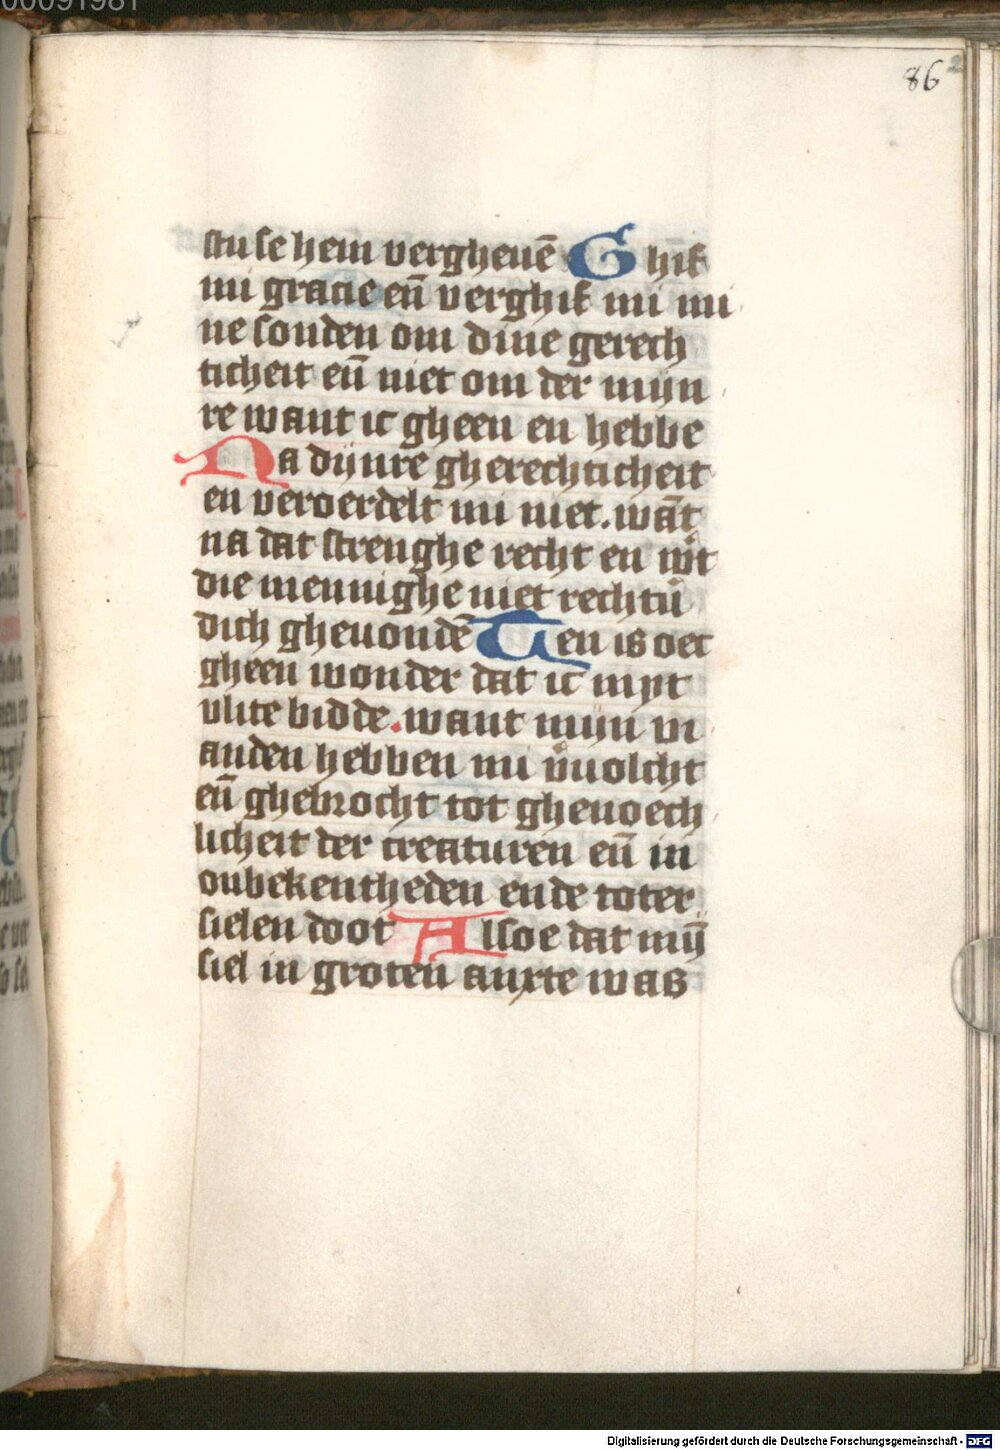 00091981
86
stu se hem vergheuē Ghif
mi gracie en̄ verghif mi mi
ne sonden om dine gerech
ticheit en̄ niet om der mijn
re want ic gheen en hebbe
Na dijnre gherechticheit
en veroerdelt mi niet. wāt
na dat strenghe recht en wͦt
die mennighe niet rechtū
dich gheuondē Ten is oec
gheen wonder dat ic myt
vlite bidde. want mijn vi
anden hebben mi v̄uolcht
en̄ ghebrocht tot gheuoech
licheit der creaturen en̄ in
onbekentheden ende toter
sielen doot Alsoe dat mij̄
siel in groten anxte was
Digitalisierung gefördert durch die Deutsche Forschungsgemeinschaft - DFG